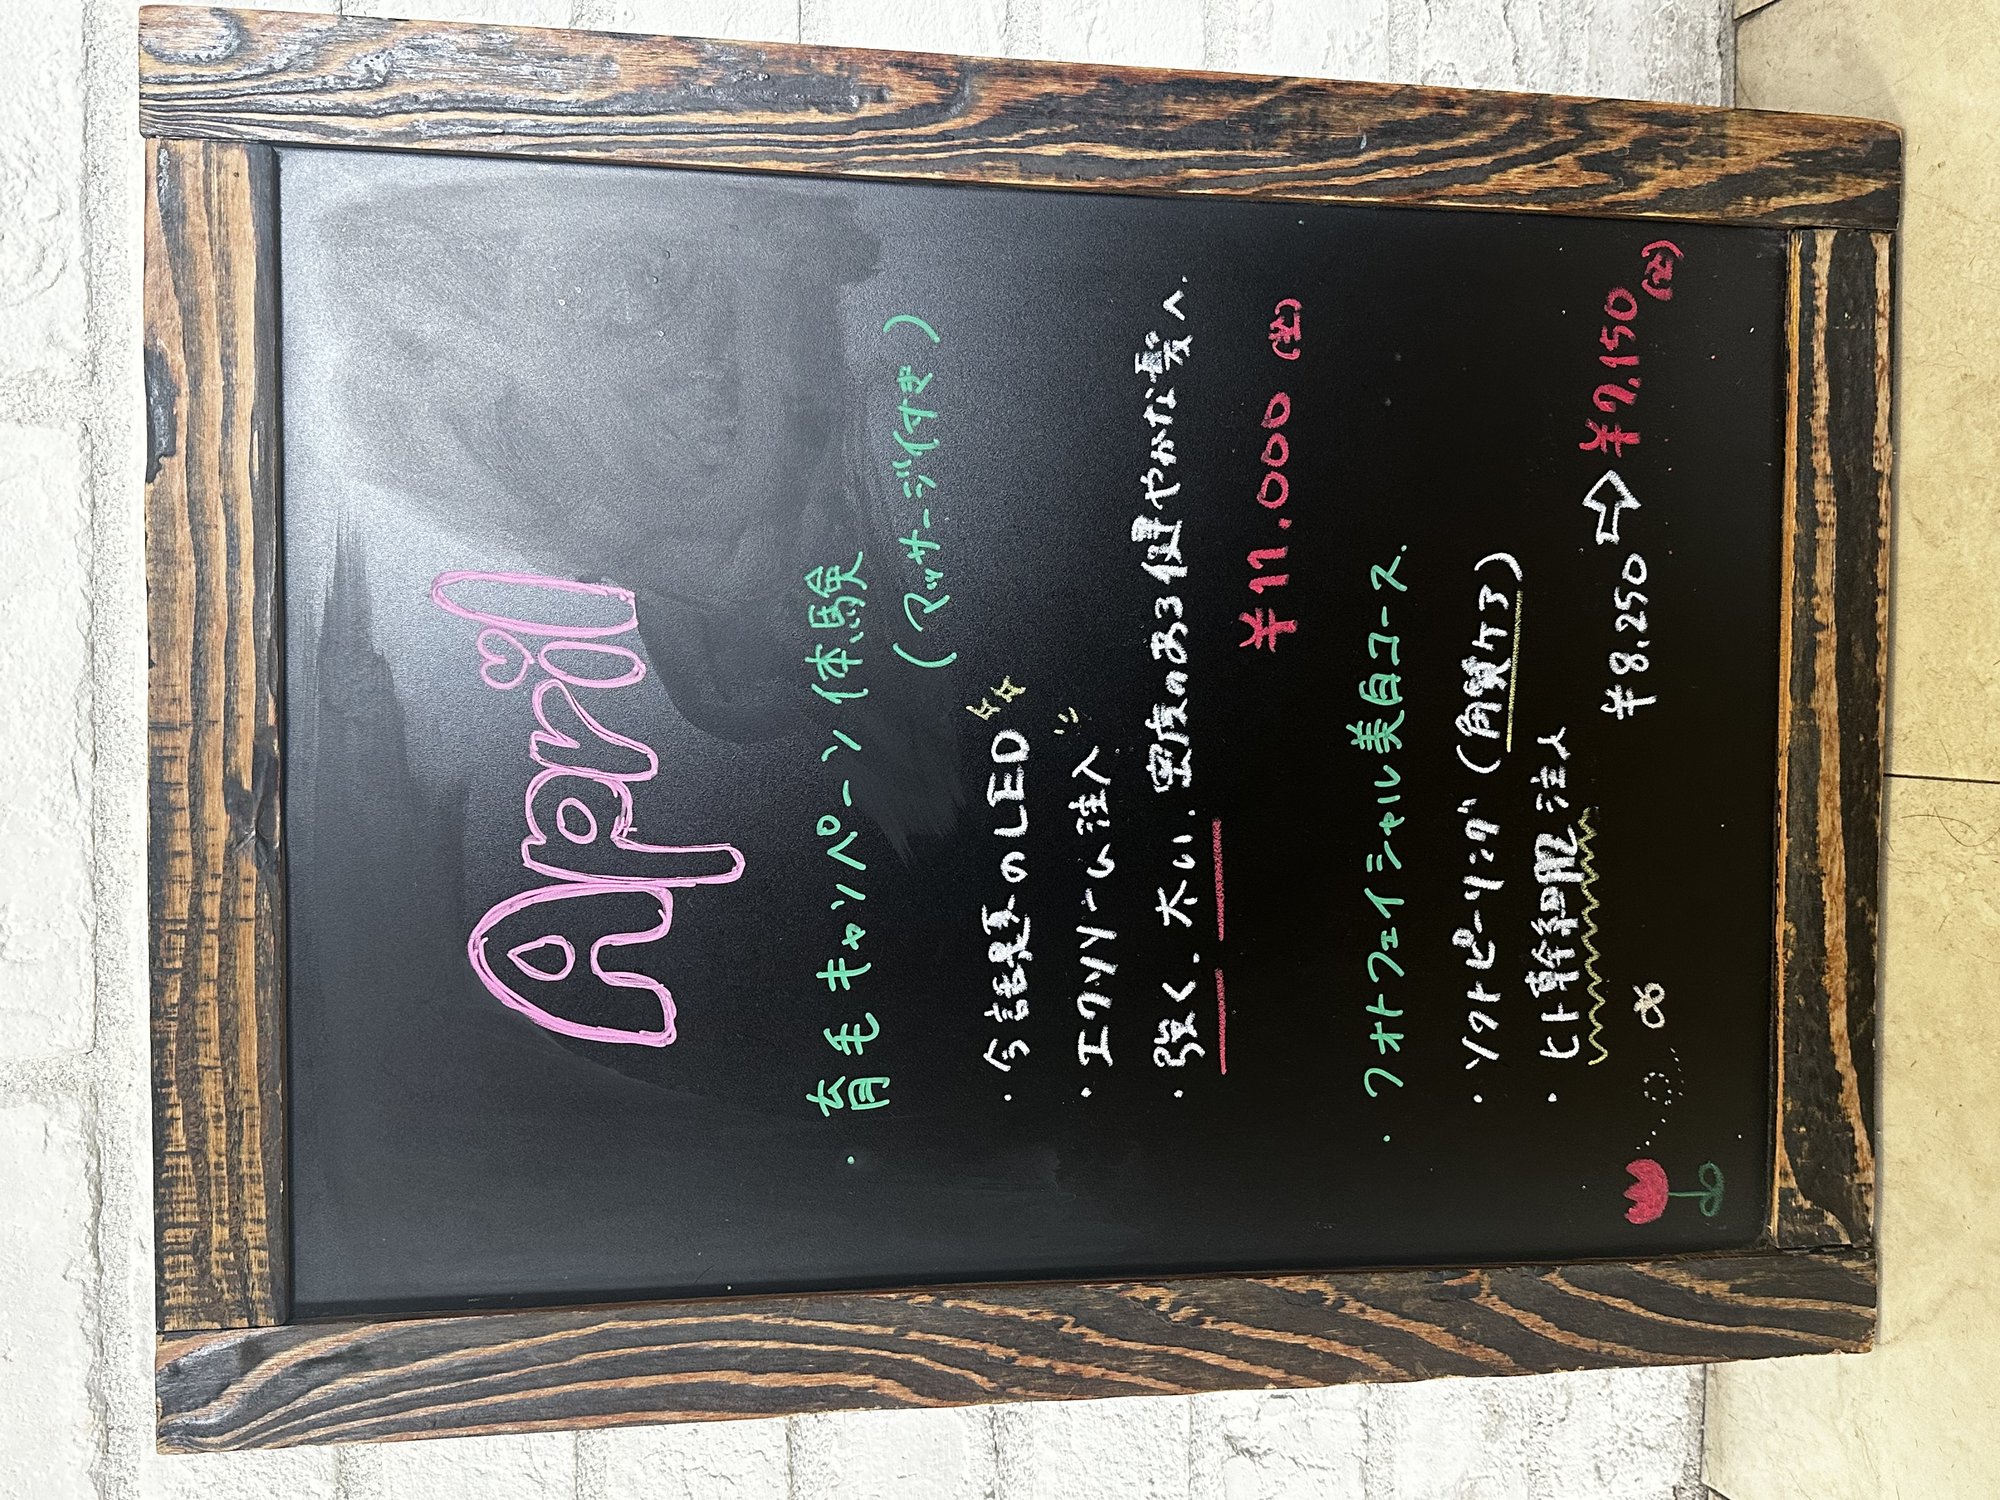 April
・育毛キャンペーン体験
(マッサージ付き)
・今話題のLED
・エクソソーム注入
・強く、太い、密度のある健やかな髪へ.
¥11.000(込)
・フォトフェイシャル美白コース.
・ソフトピーリング(角質ケア)
・ヒト幹細胞注入
¥8.250⇨¥7.150(込)